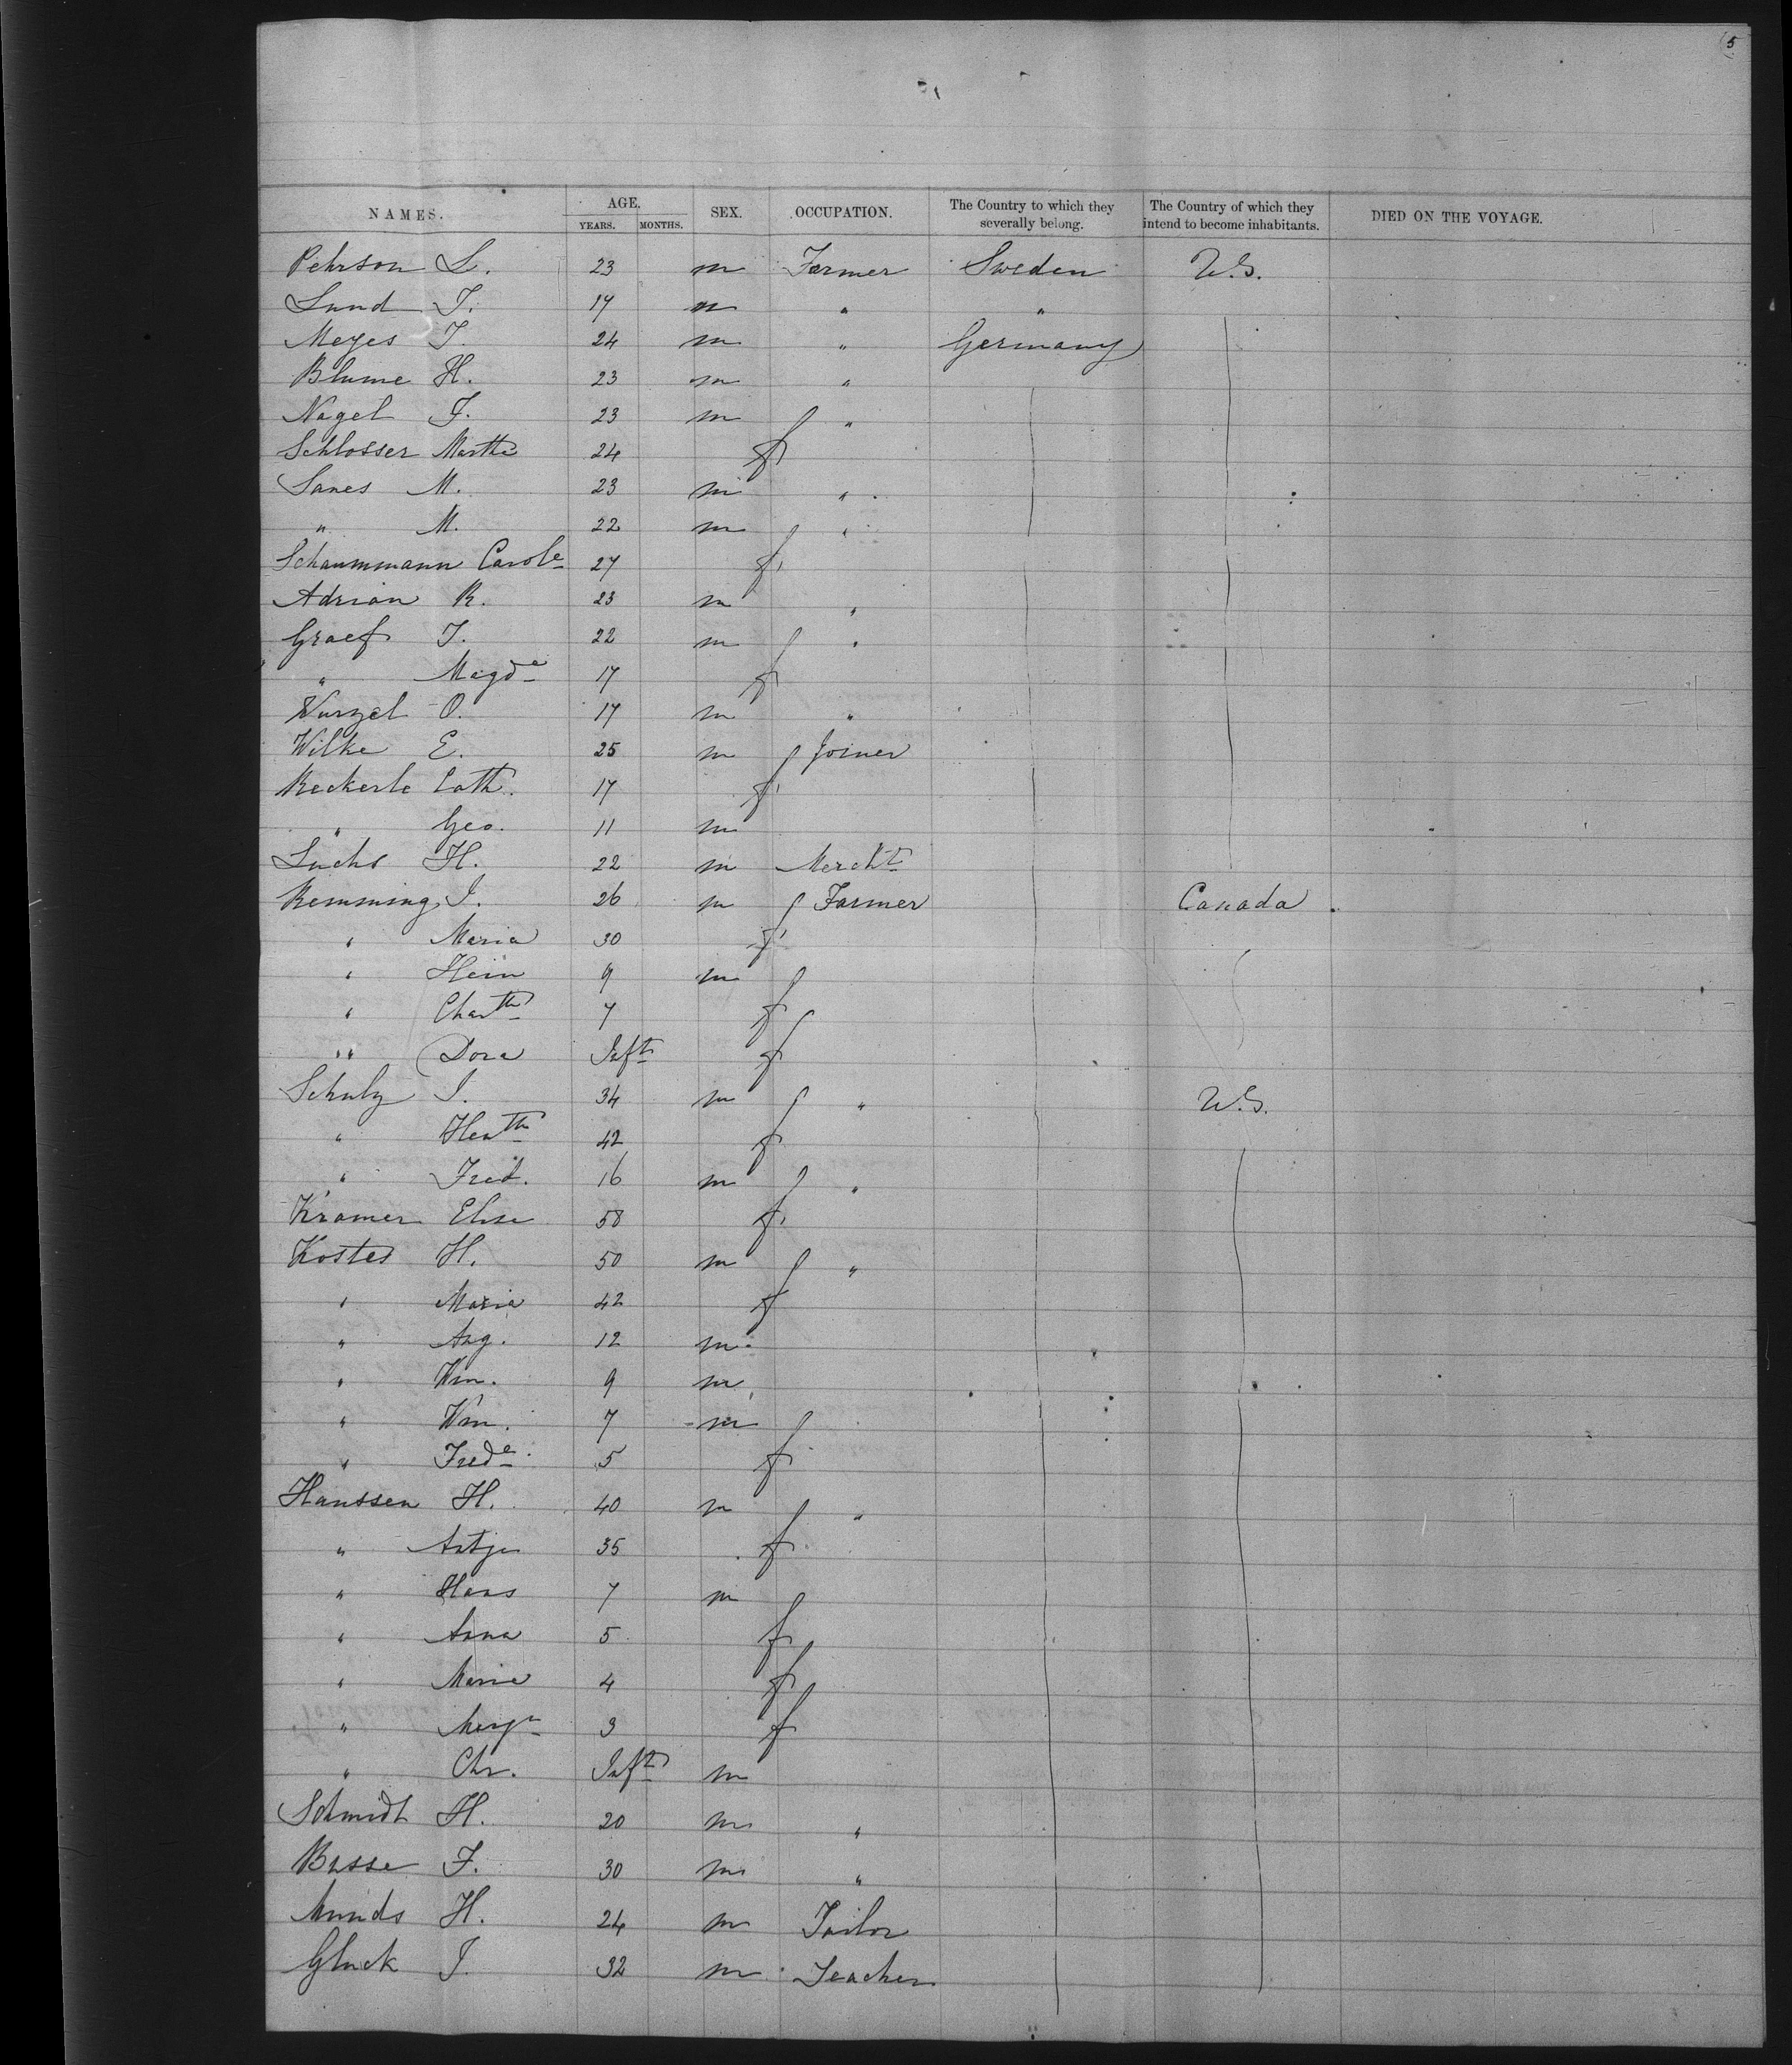 5
NAMES. AGE. YEARS. MONTHS. SEX. OCCUPATION. The Country to which they severally belong. The Country of which they intend to become inhabitants. DIED ON THE VOYAGE.
Pehrson L. 23 m Farmer Sweden U.S.
Lund J. 17 m " "
Meyes J. 24 m " Germany
Blume H. 23 m "
Nagel F. 23 m "
Schlosser Marthe 24 f
Sanes M. 23 m "
" M. 22 m "
Schaummann Carole 27 f
Adrian R. 23 m "
Graef J. 22 m "
" Magde 17 f
Wurzel O. 17 m "
Wilke E. 25 m Joiner
Reckerle Cath. 17 f
" Geo. 11 m
Luchs H. 22 m Mercht
Remming J. 26 m Farmer Canada
" Maria 30 f
" Hein 9 m
" Chartte 7 f
" Dora Inft f
Schulz J. 34 m " U.S.
" 42 f
" Fred. 16 m "
Kramer Elise 58 f
Koster H. 50 m "
" Maria 42 f
" Aug. 12 m
" Wm. 9 m
" Wm. 7 m
" Frede 5 f
Hanssen H. 40 m "
" Antje 35 f
" Hans 7 m
" Anna 5 f
" Marie 4 f
" 3 f
" Chr. Inft m
Schmidt H. 20 m "
Busse F. 30 m "
Munds H. 24 m Tailor
Gluck J. 32 m Teacher